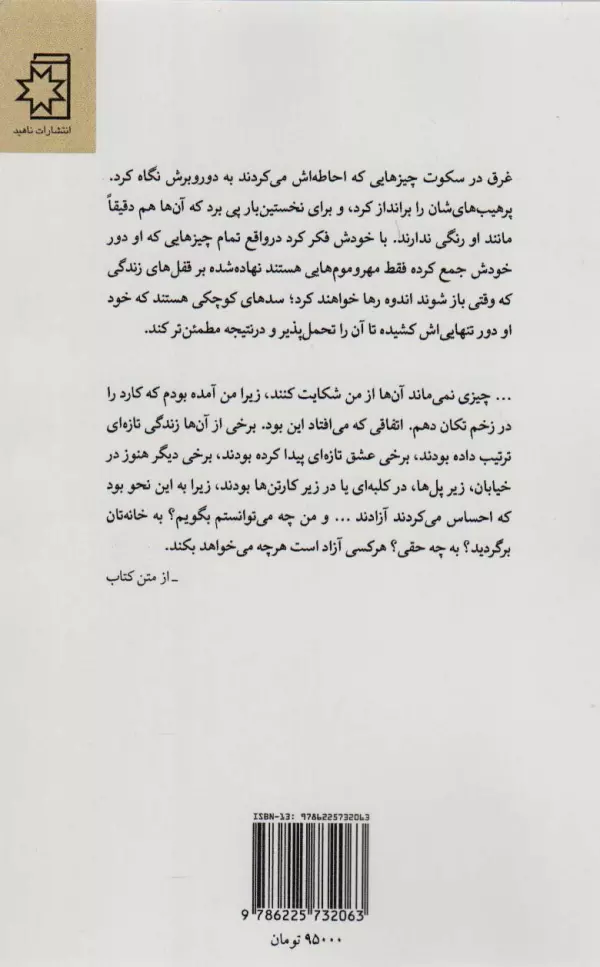 انتشارات ناهید
غرق در سکوت چیزهایی که احاطه‌اش می‌کردند به دوروبرش نگاه کرد.
پرهیب‌های‌شان را برانداز کرد، و برای نخستین‌بار پی برد که آن‌ها هم دقیقاً
مانند او رنگی ندارند. با خودش فکر کرد درواقع تمام چیزهایی که او دور
خودش جمع کرده فقط مهروموم‌هایی هستند نهاده‌شده بر قفل‌های زندگی
که وقتی باز شوند اندوه رها خواهند کرد؛ سدهای کوچکی هستند که خود
او دور تنهایی‌اش کشیده تا آن را تحمل‌پذیر و درنتیجه مطمئن‌تر کند.
... چیزی نمی‌ماند آن‌ها از من شکایت کنند، زیرا من آمده بودم که کارد را
در زخم تکان دهم. اتفاقی که می‌افتاد این بود. برخی از آن‌ها زندگی تازه‌ای
ترتیب داده بودند، برخی عشق تازه‌ای پیدا کرده بودند، برخی دیگر هنوز در
خیابان، زیر پل‌ها، در کلبه‌ای یا در زیر کارتن‌ها بودند، زیرا به این نحو بود
که احساس می‌کردند آزادند ... و من چه می‌توانستم بگویم؟ به خانه‌تان
برگردید؟ به چه حقی؟ هرکسی آزاد است هرچه می‌خواهد بکند.
ـ از متن کتاب
ISBN-13: 9786225732063
9 786225 732063
۹۵۰۰۰ تومان